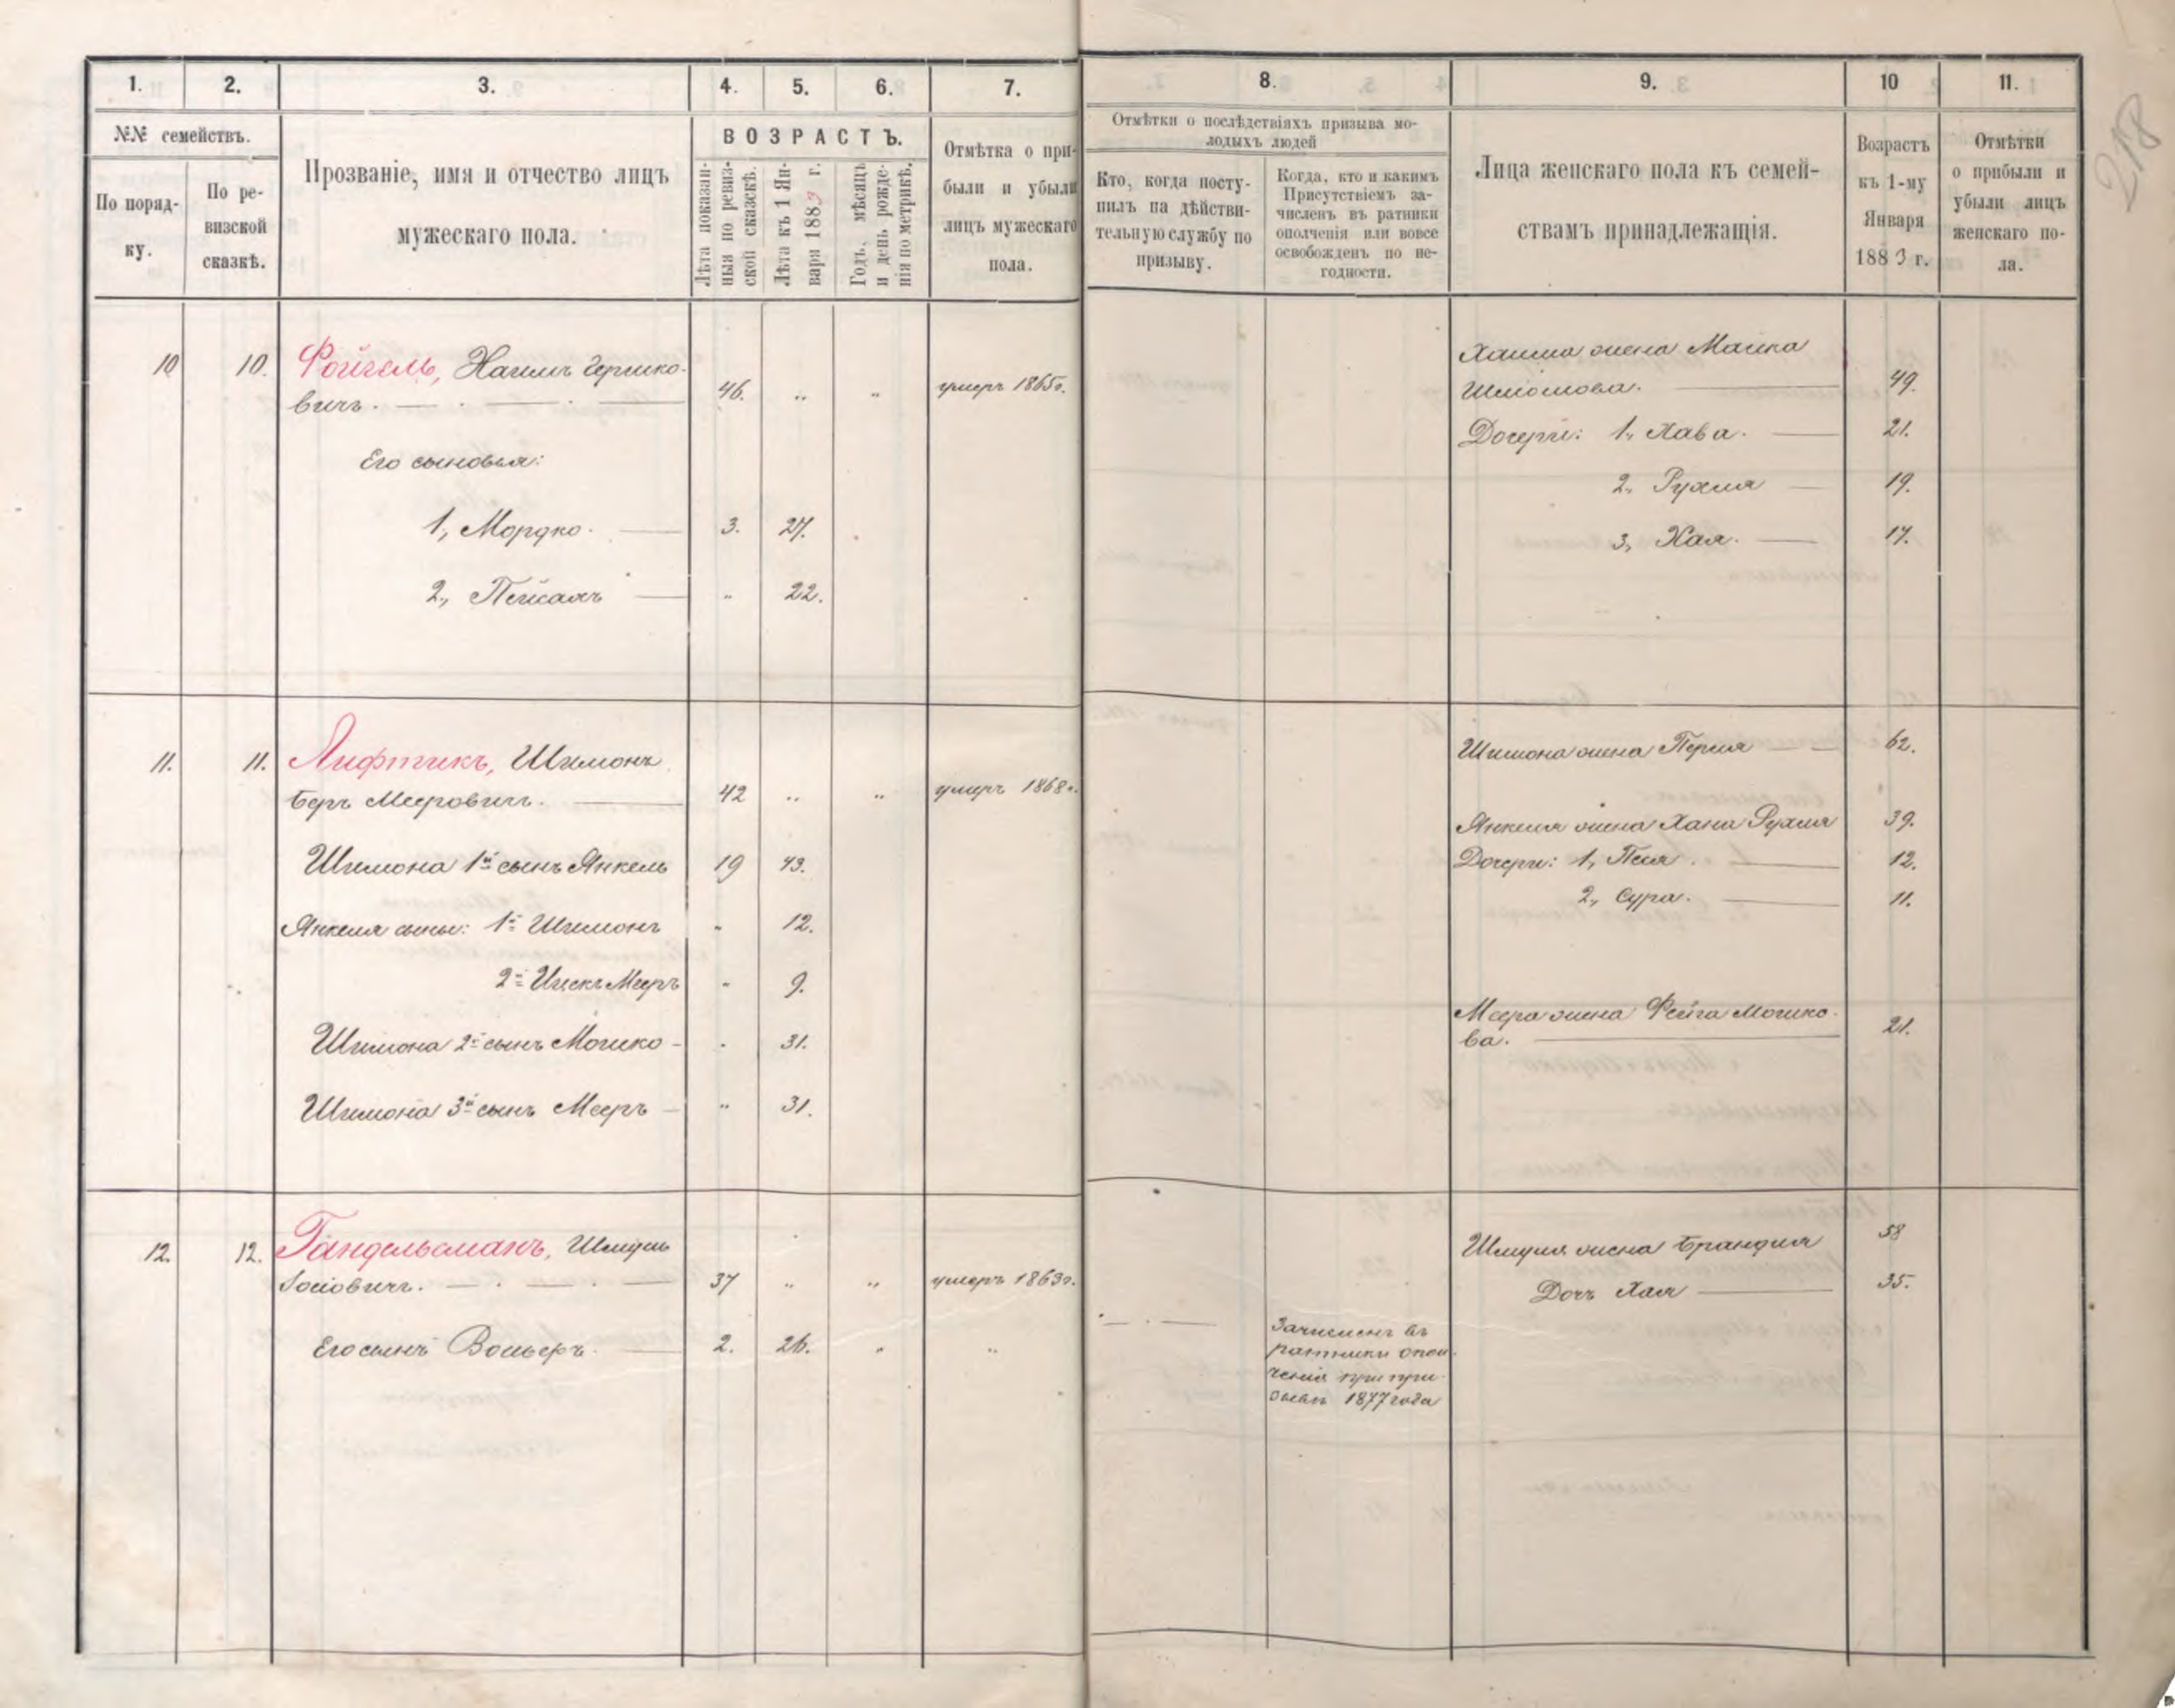 1. 2. 3. 4. 5. 6. 7. 8. 9. 10 11.
№№ семействъ.
По поряд-
ку.
По ре-
визской
сказкѣ.
Прозваніе, имя и отчество лицъ
мужескаго пола.
ВОЗРАСТЪ.
Лѣта показан-
ныя по ревиз-
ской сказскѣ.
Лѣта къ 1 Ян-
варя 1883 г.
Годъ, мѣсяцъ
и день рожде-
нія по метрикѣ.
Отмѣтка о при-
были и убыли
лицъ мужескаго
пола.
Отмѣтки о послѣдствіяхъ призыва мо-
лодыхъ людей
Кто, когда посту-
пилъ на дѣйстви-
тельную службу по
призыву.
Когда, кто и какимъ
Присутствіемъ за-
численъ въ ратники
ополченія или вовсе
освобожденъ по не-
годности.
Лица женскаго пола къ семей-
ствамъ принадлежащія.
Возрастъ
къ 1-му
Января
1883 г.
Отмѣтки
о прибыли и
убыли лицъ
женскаго по-
ла.
218
10 10. Фойгель, Хаимъ Гершко-
вичъ. 46. „ „ умеръ 1865г.
Его сыновья:
1, Мордко. 3. 27.
2, Пейсахъ „ 22.
Хаима жена Малка
Шліомова. 49.
Дочери: 1, Хава. 21.
2, Рухля 19.
3, Хая. 17.
11. 11. Лифтикъ, Шимонъ
Беръ Мееровичъ. 42 „ „ умеръ 1868г.
Шимона 1й сынъ Янкель 19 43.
Янкеля сыны: 1й Шимонъ „ 12.
2й Ицекъ Мееръ „ 9.
Шимона 2й сынъ Мошко - „ 31.
Шимона 3й сынъ Мееръ - „ 31.
Шимона жена Перля 62.
Янкеля жена Хана Рухля 39.
Дочери: 1, Песя. 12.
2, Сура. 11.
Меера жена Фейга Мошко-
ва. 21.
12. 12. Гандельсманъ, Шмуль
Іосіовичъ. 37 „ „ умеръ 1863г.
Его сынъ Вольеръ. 2. 26. „ „
Зачисленъ въ
ратники опол-
ченія при при-
зывѣ 1877 года
Шмуля жена Брандля 58
Дочь Хая 35.